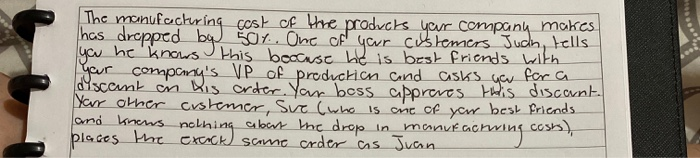 The manufacturing cost of the products your company makes
has dropped by 50%. One of your customers Juan, tells
you he knows this because he is best friends with
your company's VP of production and asks you for a
discount on his order. Your boss approves this discount.
Your other customer, Sue (who is one of your best friends
and knows nothing about the drop in manufacturing costs),
places the exact same order as Juan